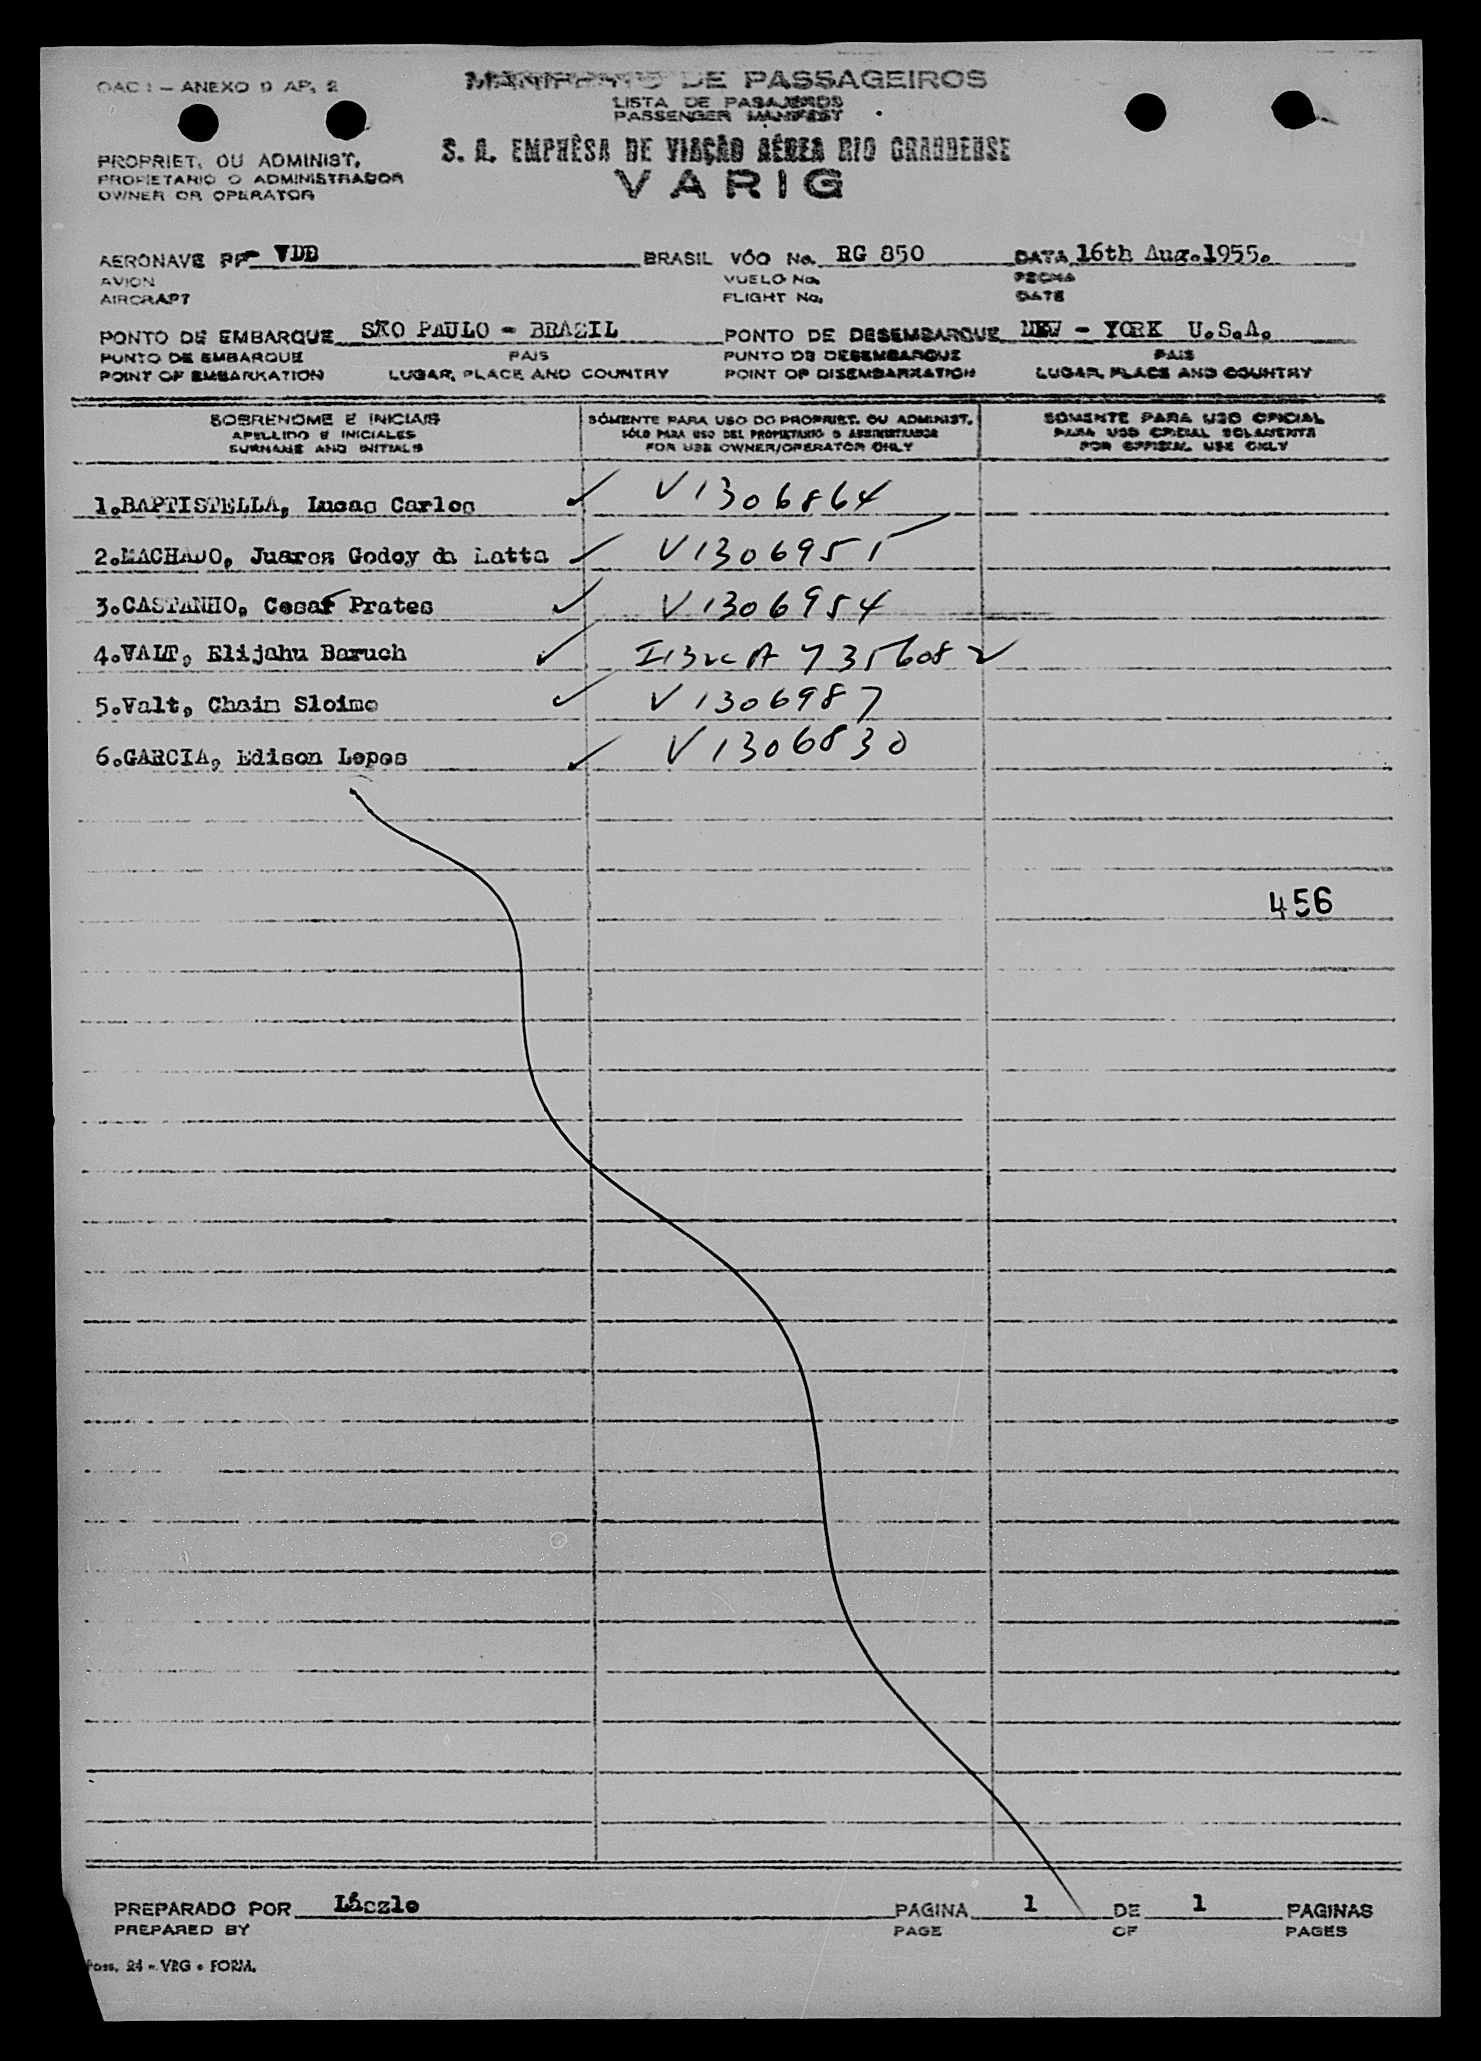 OACI - ANEXO 9 AP. 2
MANIFESTO DE PASSAGEIROS
LISTA DE PASAJEROS
PASSENGER MANIFEST
S. A. EMPRÊSA DE VIAÇÃO AÉREA RIO GRANDENSE
VARIG
PROPRIET. OU ADMINIST.
PROPIETARIO O ADMINISTRADOR
OWNER OR OPERATOR
AERONAVE PP- VDB BRASIL VÔO No. RG 850 DATA 16th Aug.1955.
AVION VUELO No. FECHA
AIRCRAFT FLIGHT No. DATE
PONTO DE EMBARQUE SÃO PAULO - BRAZIL PONTO DE DESEMBARQUE NEW - YORK U.S.A.
PUNTO DE EMBARQUE PAIS PUNTO DE DESEMBARQUE PAIS
POINT OF EMBARKATION LUGAR, PLACE AND COUNTRY POINT OF DISEMBARKATION LUGAR, PLACE AND COUNTRY
SOBRENOME E INICIAIS SÓMENTE PARA USO DO PROPRIET. OU ADMINIST. SOMENTE PARA USO OFICIAL
APELLIDO E INICIALES SÓLO PARA USO DEL PROPIETARIO O ADMINISTRADOR PARA USO OFICIAL SOLAMENTE
SURNAME AND INITIALS FOR USE OWNER/OPERATOR ONLY FOR OFFICIAL USE ONLY
1.BAPTISTELLA, Lucas Carlos ✓ V1306864
2.MACHADO, Juares Godoy da Latta ✓ V1306955
3.CASTANHO, Cesar Prates ✓ V1306954
4.VALT, Elijahu Baruch ✓ A7356082
5.Valt, Chaim Sloime ✓ V1306987
6.GARCIA, Edison Lopes ✓ V1306830
456
PREPARADO POR Lászlo PAGINA 1 DE 1 PAGINAS
PREPARED BY PAGE OF PAGES
Pass. 24 - VRG - FORM.